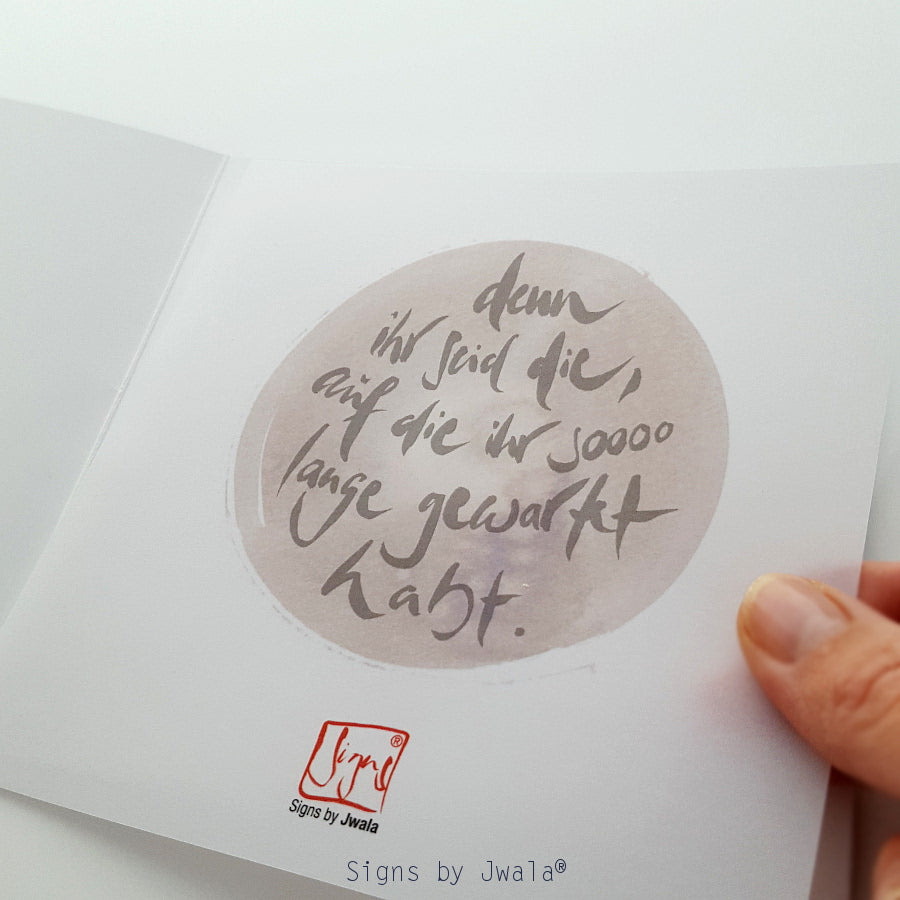 denn
ihr seid die,
auf die ihr soooo
lange gewartet
habt.
Signs®
Signs by Jwala
Signs by Jwala®